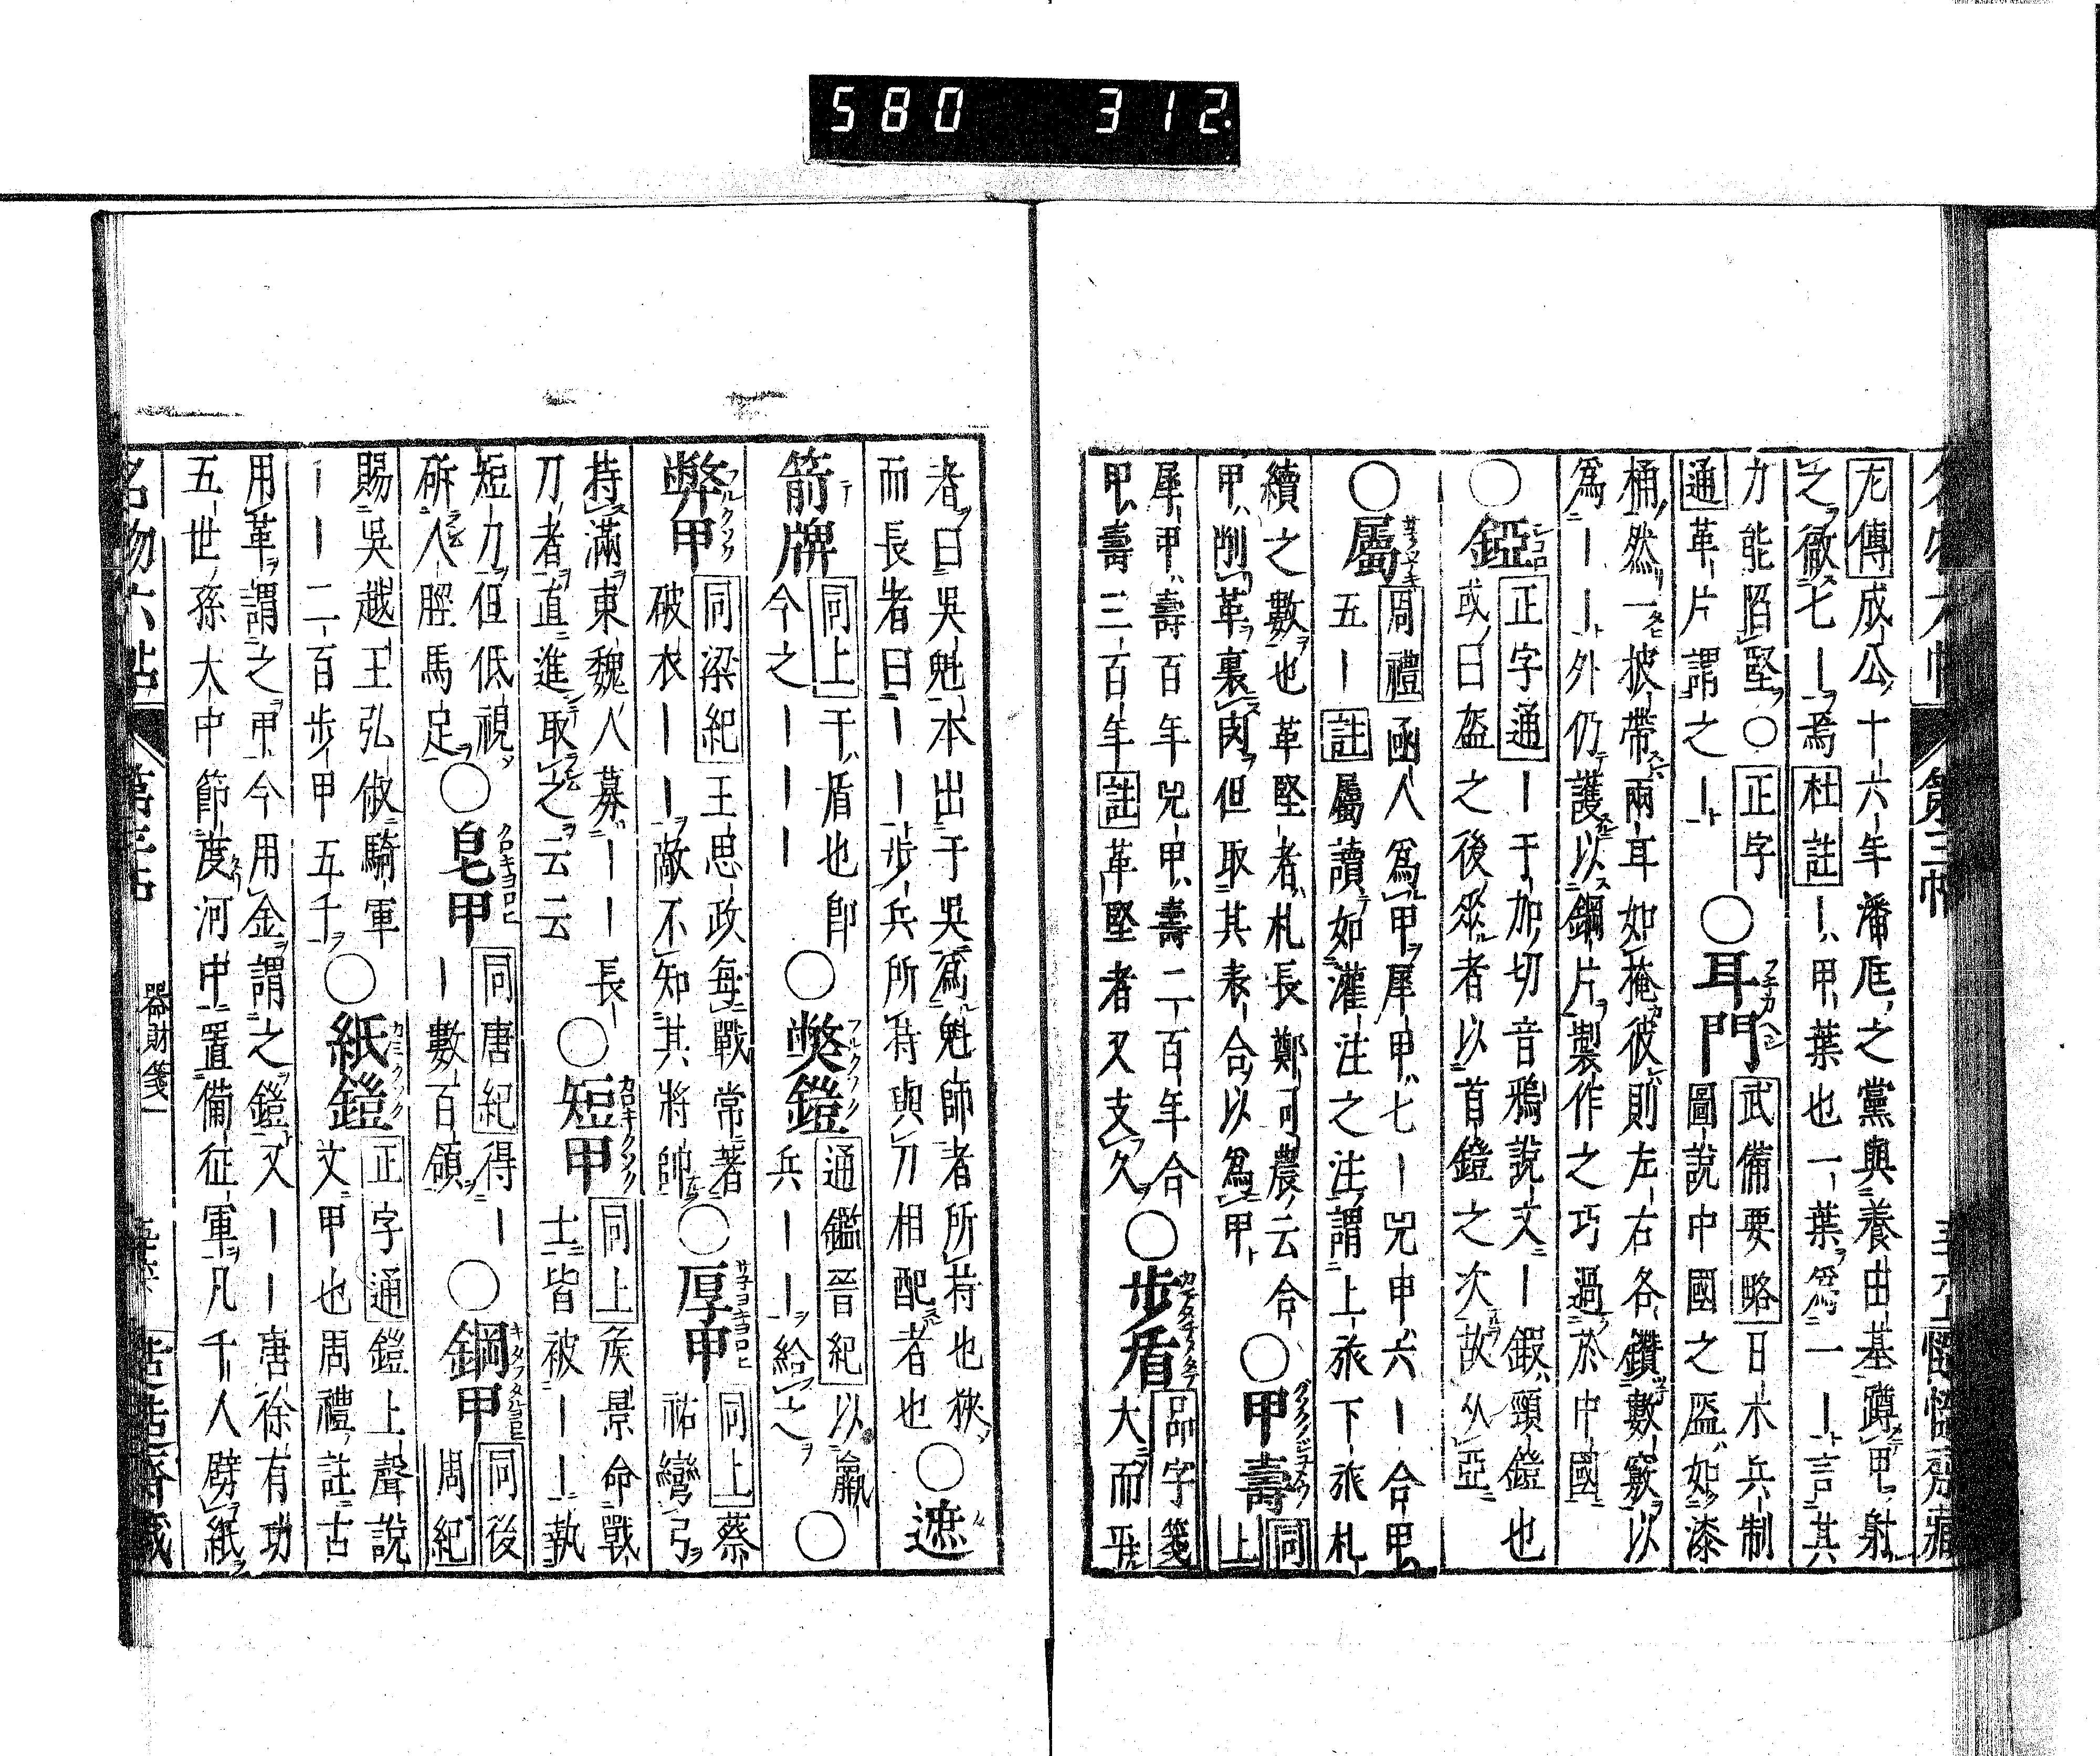 580 312
左傳成公十六年潘尫之黨與養由基蹲甲射
之徹七｜焉杜註｜甲葉也一葉爲一｜言其
力能陷堅○正字
通革片謂之｜
○耳門
武備要略日本兵制
圖說中國之盔如漆
桶然一披帶兩耳如掩彼則左右各鑽數竅以
爲｜｜外仍護以鋼片製作之巧過於中國
○錏
正字通｜于加切音鴉說文｜鍜頸鎧也
或曰盔之後垂者以首鎧之次故从亞
○屬
周禮函人爲甲犀甲七｜兕甲六｜合甲
五｜註屬讀如灌注之注謂上旅下旅札
續之數也革堅者札長鄭司農云合
甲削革裏肉但取其表合以爲甲
○甲壽
同上
犀甲壽百年兕甲壽二百年合
甲壽三百年註革堅者又支久
○步盾
品字箋
大而平
者曰吳魁本出于吳爲魁師者所持也狹
而長者曰｜｜步兵所持與刀相配者也
○遮
箭牌
同上干盾也卽
今之｜｜｜
○獘鎧
通鑑晉紀以羸
兵｜｜給之
○
弊甲
同梁紀王思政每戰常著
破衣｜｜敵不知其將帥
○厚甲
同上蔡
祐彎弓
持滿東魏人募｜｜長
刀者直進取之云云
○短甲
同上侯景命戰
士皆被｜｜執
短刀但低視
斫人脛馬足
○皂甲
同唐紀得｜
｜數百領
○鋼甲
同後
周紀
賜吳越王弘俶騎軍
｜｜二百步甲五千
○紙鎧
正字通鎧上聲說
文甲也周禮註古
用革謂之甲今用金謂之鎧又｜｜唐徐有功
五世孫大中節度河中置備征軍凡千人劈紙
名物六帖
第三帖
器財箋一